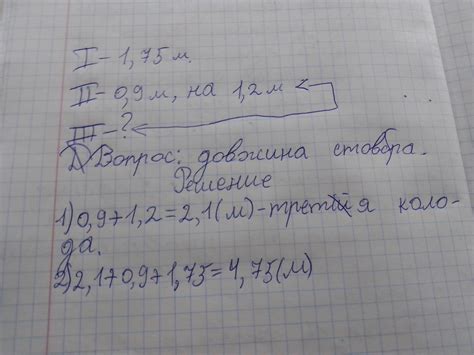 I - 1,75 м.
II - 0,9 м, на 1,2 м <
III - ?
Вопрос: довжина стовбра.
Решение
1) 0,9 + 1,2 = 2,1 (м) - третья коло-
да.
2) 2,1 + 0,9 + 1,75 = 4,75 (м)